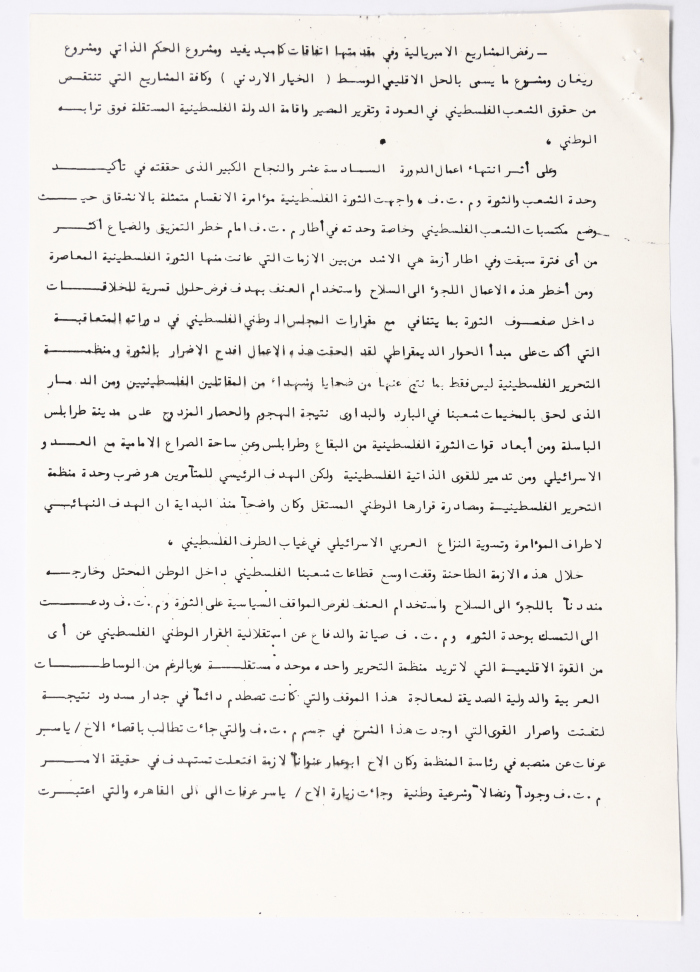 — رفض المشاريع الامبريالية وفي مقدمتها اتفاقات كامب ديفيد ومشروع الحكم الذاتي ومشروع
ريغان ومشروع ما يسمى بالحل الاقليمي الوسط ( الخيار الاردني ) وكافة المشاريع التي تنتقص
من حقوق الشعب الفلسطيني في العودة وتقرير المصير واقامة الدولة الفلسطينية المستقلة فوق ترابه
الوطني .
وعلى أثر انتهاء اعمال الدورة السادسة عشر والنجاح الكبير الذى حققته في تأكيد
وحدة الشعب والثورة و م .ت.ف ، واجهت الثورة الفلسطينية مؤامرة الانقسام متمثلة بالانشقاق حيث
وضع مكتسبات الشعب الفلسطيني وخاصة وحدته في أطار م .ت.ف امام خطر التمزيق والضياع أكثر
من أى فترة سبقت وفي اطار أزمة هي الاشد من بين الازمات التي عانت منها الثورة الفلسطينية المعاصرة
ومن أخطر هذه الاعمال اللجوء الى السلاح واستخدام العنف بهدف فرض حلول قسرية للخلافات
داخل صفوف الثورة بما يتنافي مع مقرارات المجلس الوطني الفلسطيني في دوراته المتعاقبة
التي أكدت على مبدأ الحوار الديمقراطي لقد الحقت هذه الاعمال افدح الاضرار بالثورة ومنظمة
التحرير الفلسطينية ليس فقط بما نتج عنها من ضحايا وشهداء من المقاتلين الفلسطينيين ومن الدمار
الذى لحق بالمخيمات شعبنا في البارد والبداوى نتيجة الهجوم والحصار المزدوج على مدينة طرابلس
الباسلة ومن أبعاد قوات الثورة الفلسطينية من البقاع وطرابلس وعن ساحة الصراع الامامية مع العدو
الاسرائيلي ومن تدمير للقوى الذاتية الفلسطينية ولكن الهدف الرئيسي للمتآمرين هو ضرب وحدة منظمة
التحرير الفلسطينية ومصادرة قرارها الوطني المستقل وكان واضحاً منذ البداية ان الهدف النهائي
لاطراف المؤامرة وتسوية النزاع العربي الاسرائيلي في غياب الطرف الفلسطيني .
خلال هذه الازمة الطاحنة وقفت اوسع قطاعات شعبنا الفلسطيني داخل الوطن المحتل وخارجه
منددناً باللجوء الى السلاح واستخدام العنف لفرض المواقف السياسية على الثورة و م .ت.ف ودعت
الى التمسك بوحدة الثوره و م .ت. ف صيانة والدفاع عن استقلالية القرار الوطني الفلسطيني عن أى
من القوة الاقليمية التي لا تريد منظمة التحرير واحده موحده مستقلة وبالرغم من الوساطات
العربية والدولية الصديقة لمعالجة هذا الموقف والتي كانت تصطدم دائماً في جدار مسدود نتيجة
لتعنت واصرار القوى التي اوجدت هذا الشرخ في جسم م .ت.ف والتي جاءت تطالب باقصاء الاخ / ياسر
عرفات عن منصبه في رئاسة المنظمة وكان الاخ ابوعمار عنواناً لازمة افتعلت تستهدف في حقيقة الامر
م .ت.ف وجوداً ونضالاً وشرعية وطنية وجاءت زيارة الاخ / ياسر عرفات الى الى القاهره والتي اعتبرت